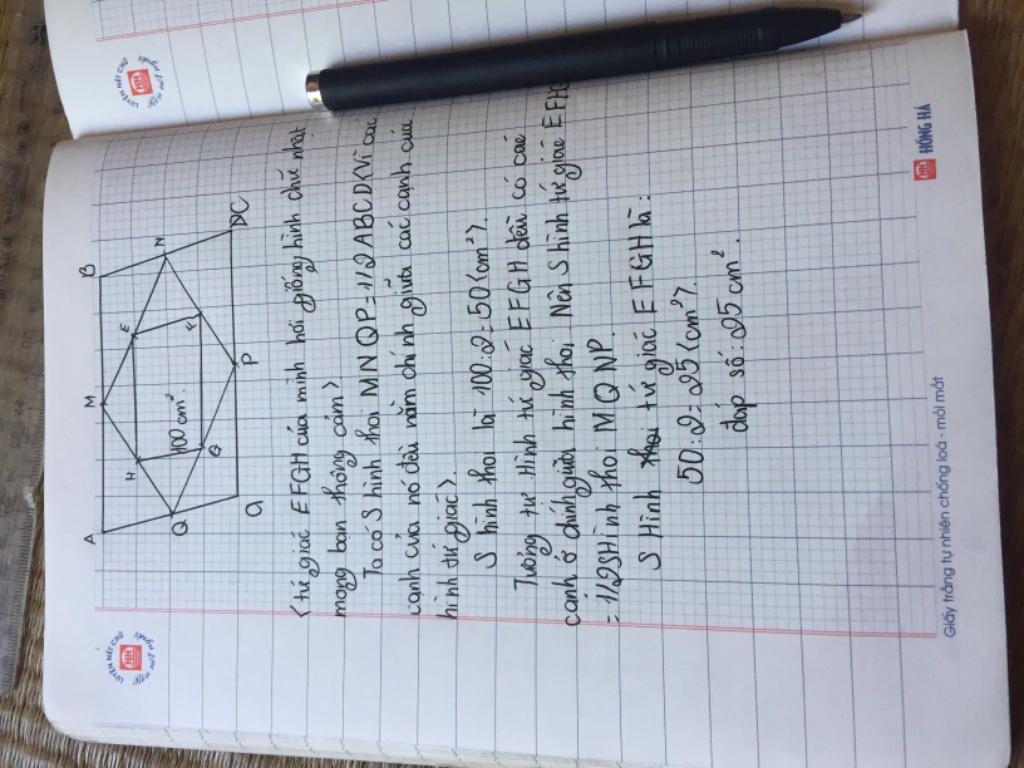 LUYỆN NÉT CHỮ
A
M
B
H
E
Q
100 cm².
N
G
F
P
D
C
(tứ giác EFGH của mình hơi giống hình chữ nhật
mong bạn thông cảm)
Ta có S hình thoi MNQP = 1/2 ABCD (Vì các
cạnh của nó đều nằm chính giữa các cạnh của
hình tứ giác).
S hình thoi là 100 : 2 = 50 (cm²).
Tương tự hình tứ giác EFGH đều có các
cạnh ở chính giữa hình thoi. Nên S hình tứ giác EFG
= 1/2 S Hình thoi MQNP.
S Hình tứ giác EFGH là:
50 : 2 = 25 (cm²).
đáp số: 25 cm².
HỒNG HÀ
Giấy trắng tự nhiên chống loá - mỏi mắt
LUYỆN NÉT CHỮ